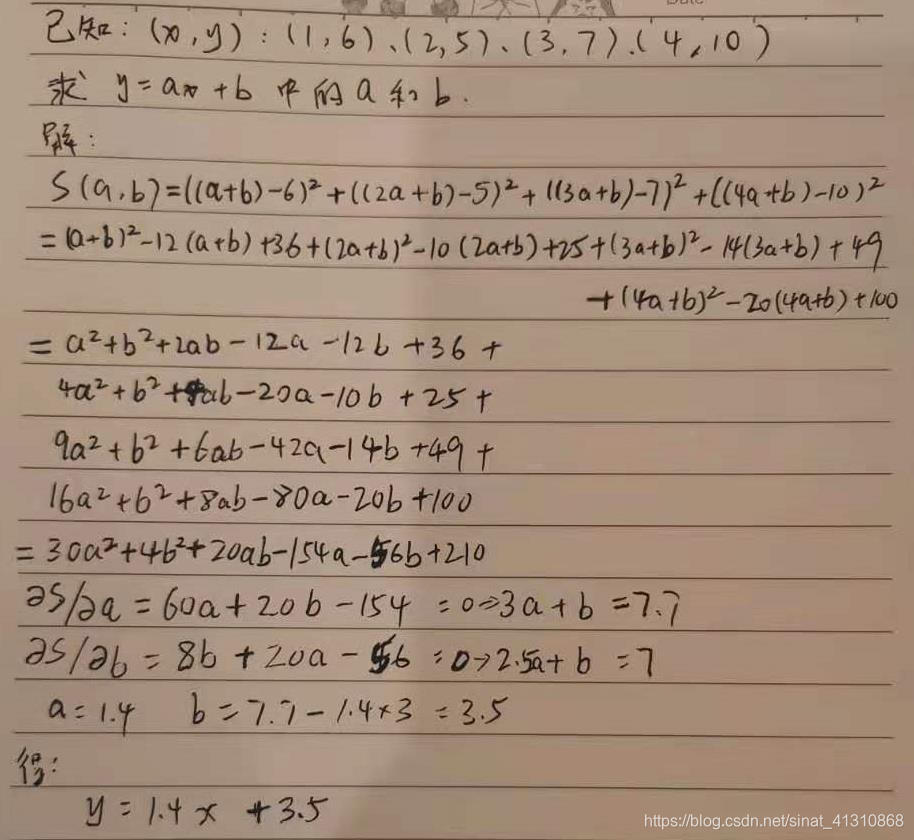 已知：(x,y)：(1,6)、(2,5)、(3,7)、(4,10)
求 y=ax+b 中的 a 和 b.
解：
S(a,b)=((a+b)-6)²+((2a+b)-5)²+((3a+b)-7)²+((4a+b)-10)²
=(a+b)²-12(a+b)+36+(2a+b)²-10(2a+b)+25+(3a+b)²-14(3a+b)+49
+(4a+b)²-20(4a+b)+100
= a²+b²+2ab-12a-12b+36+
4a²+b²+4ab-20a-10b+25+
9a²+b²+6ab-42a-14b+49+
16a²+b²+8ab-80a-20b+100
=30a²+4b²+20ab-154a-56b+210
∂S/∂a = 60a+20b-154 =0⇒3a+b=7.7
∂S/∂b = 8b+20a-56 =0⇒2.5a+b=7
a=1.4 b=7.7-1.4×3=3.5
得：
y=1.4x+3.5
https://blog.csdn.net/sinat_41310868